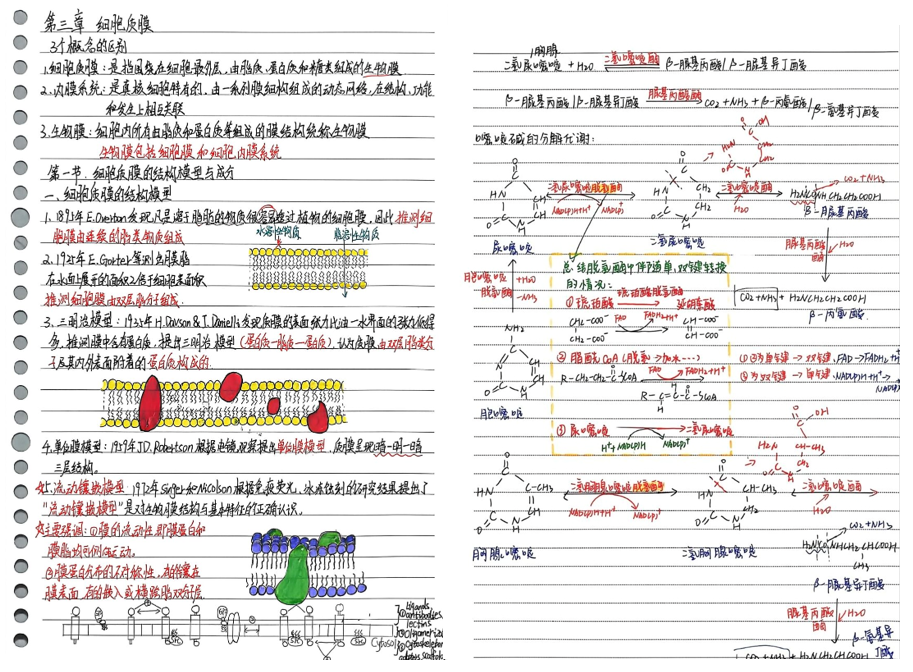 第三章 细胞质膜
3个概念的区别
1.细胞质膜：是指围绕在细胞最外层，由脂质、蛋白质和糖类组成的生物膜
2.内膜系统：是真核细胞特有的，由一系列膜结构组成的动态网络，在结构、功能
和发生上相互关联
3.生物膜：细胞内所有由脂质和蛋白质等组成的膜结构统称生物膜
生物膜包括细胞膜和细胞内膜系统
第一节. 细胞质膜的结构模型与成分
一、细胞质膜的结构模型
1. E.Overton发现凡是溶于脂肪的物质很容易透过植物的细胞膜，因此推测细
胞膜由连续的脂类物质组成
水溶性物质
脂溶性物质
2. 1925年E.Gorter等测出膜脂
在水面上展开的面积2倍于细胞表面积
推测细胞膜由双层脂分子组成.
3. 三明治模型：1935年H.Davson&J.Danielli发现质膜的表面张力比油-水界面的张力低得
多，推测膜中含有蛋白质，提出三明治模型(蛋白质-脂质-蛋白质)，认为质膜由双层脂类分
子及其内外表面附着的蛋白质构成的.
4. 单位膜模型：1959年J.D.Robertson根据电镜观察提出单位膜模型，质膜呈现暗-明-暗
三层结构。
5.流动镶嵌模型：1972年Singer和Nicolson根据免疫荧光、冰冻蚀刻的研究结果提出了
"流动镶嵌模型"是对生物膜结构与基本特征的正确认识。
主要强调：①膜的流动性，即膜蛋白和
膜脂均可侧向运动。
②膜蛋白分布的不对称性，有的镶在
膜表面，有的嵌入或横跨脂双分子层
ligands
antibodies
lectins
Cytosol
胸腺
二氢尿嘧啶 + H2O 二氢嘧啶酶 β-脲基丙酸/β-脲基异丁酸
β-脲基丙酸/β-脲基异丁酸 脲基丙酸酶 CO2+NH3+β-丙氨酸/
β-氨基异丁酸
嘧啶碱的分解代谢：
二氢尿嘧啶脱氢酶
NAD(P)H+H+ NAD(P)+
二氢嘧啶酶
H2O
CO2+NH3
H2NCONHCH2CH2COOH
β-脲基丙酸
尿嘧啶
二氢尿嘧啶
脲基丙酸酶
H2O
CO2+NH3 + H2NCH2CH2COOH
β-丙氨酸
胞嘧啶脱氨酶
+H2O
-NH3
NH2
胞嘧啶
总结脱氢酶中伴随单、双键转换
的情况：
①琥珀酸 琥珀酸脱氢酶 延胡索酸
CH2-COO- FAD FADH2+H+ CH-COO-
CH2-COO- CH-COO-
②脂酰CoA(脱氢→加水…)
R-CH2-CH2-C-SCoA FAD FADH2+H+
R-C=C-C-SCoA
③尿嘧啶 二氢尿嘧啶
H+ +NAD(P)H NAD(P)+
①为单键→双键，FAD→FADH2+H+
②为双键→单键，NAD(P)H+H+→
NAD(P)+
二氢胸腺嘧啶脱氢酶
NAD(P)H+H+ NAD(P)+
二氢嘧啶酶
H2O
胸腺嘧啶
二氢胸腺嘧啶
CO2+NH3
H2NCONHCH2CHCOOH
CH3
β-脲基异丁酸
脲基丙酸酶
H2O
β-氨基异
丁酸
CO2+NH3 + H2NCH2CHCOOH